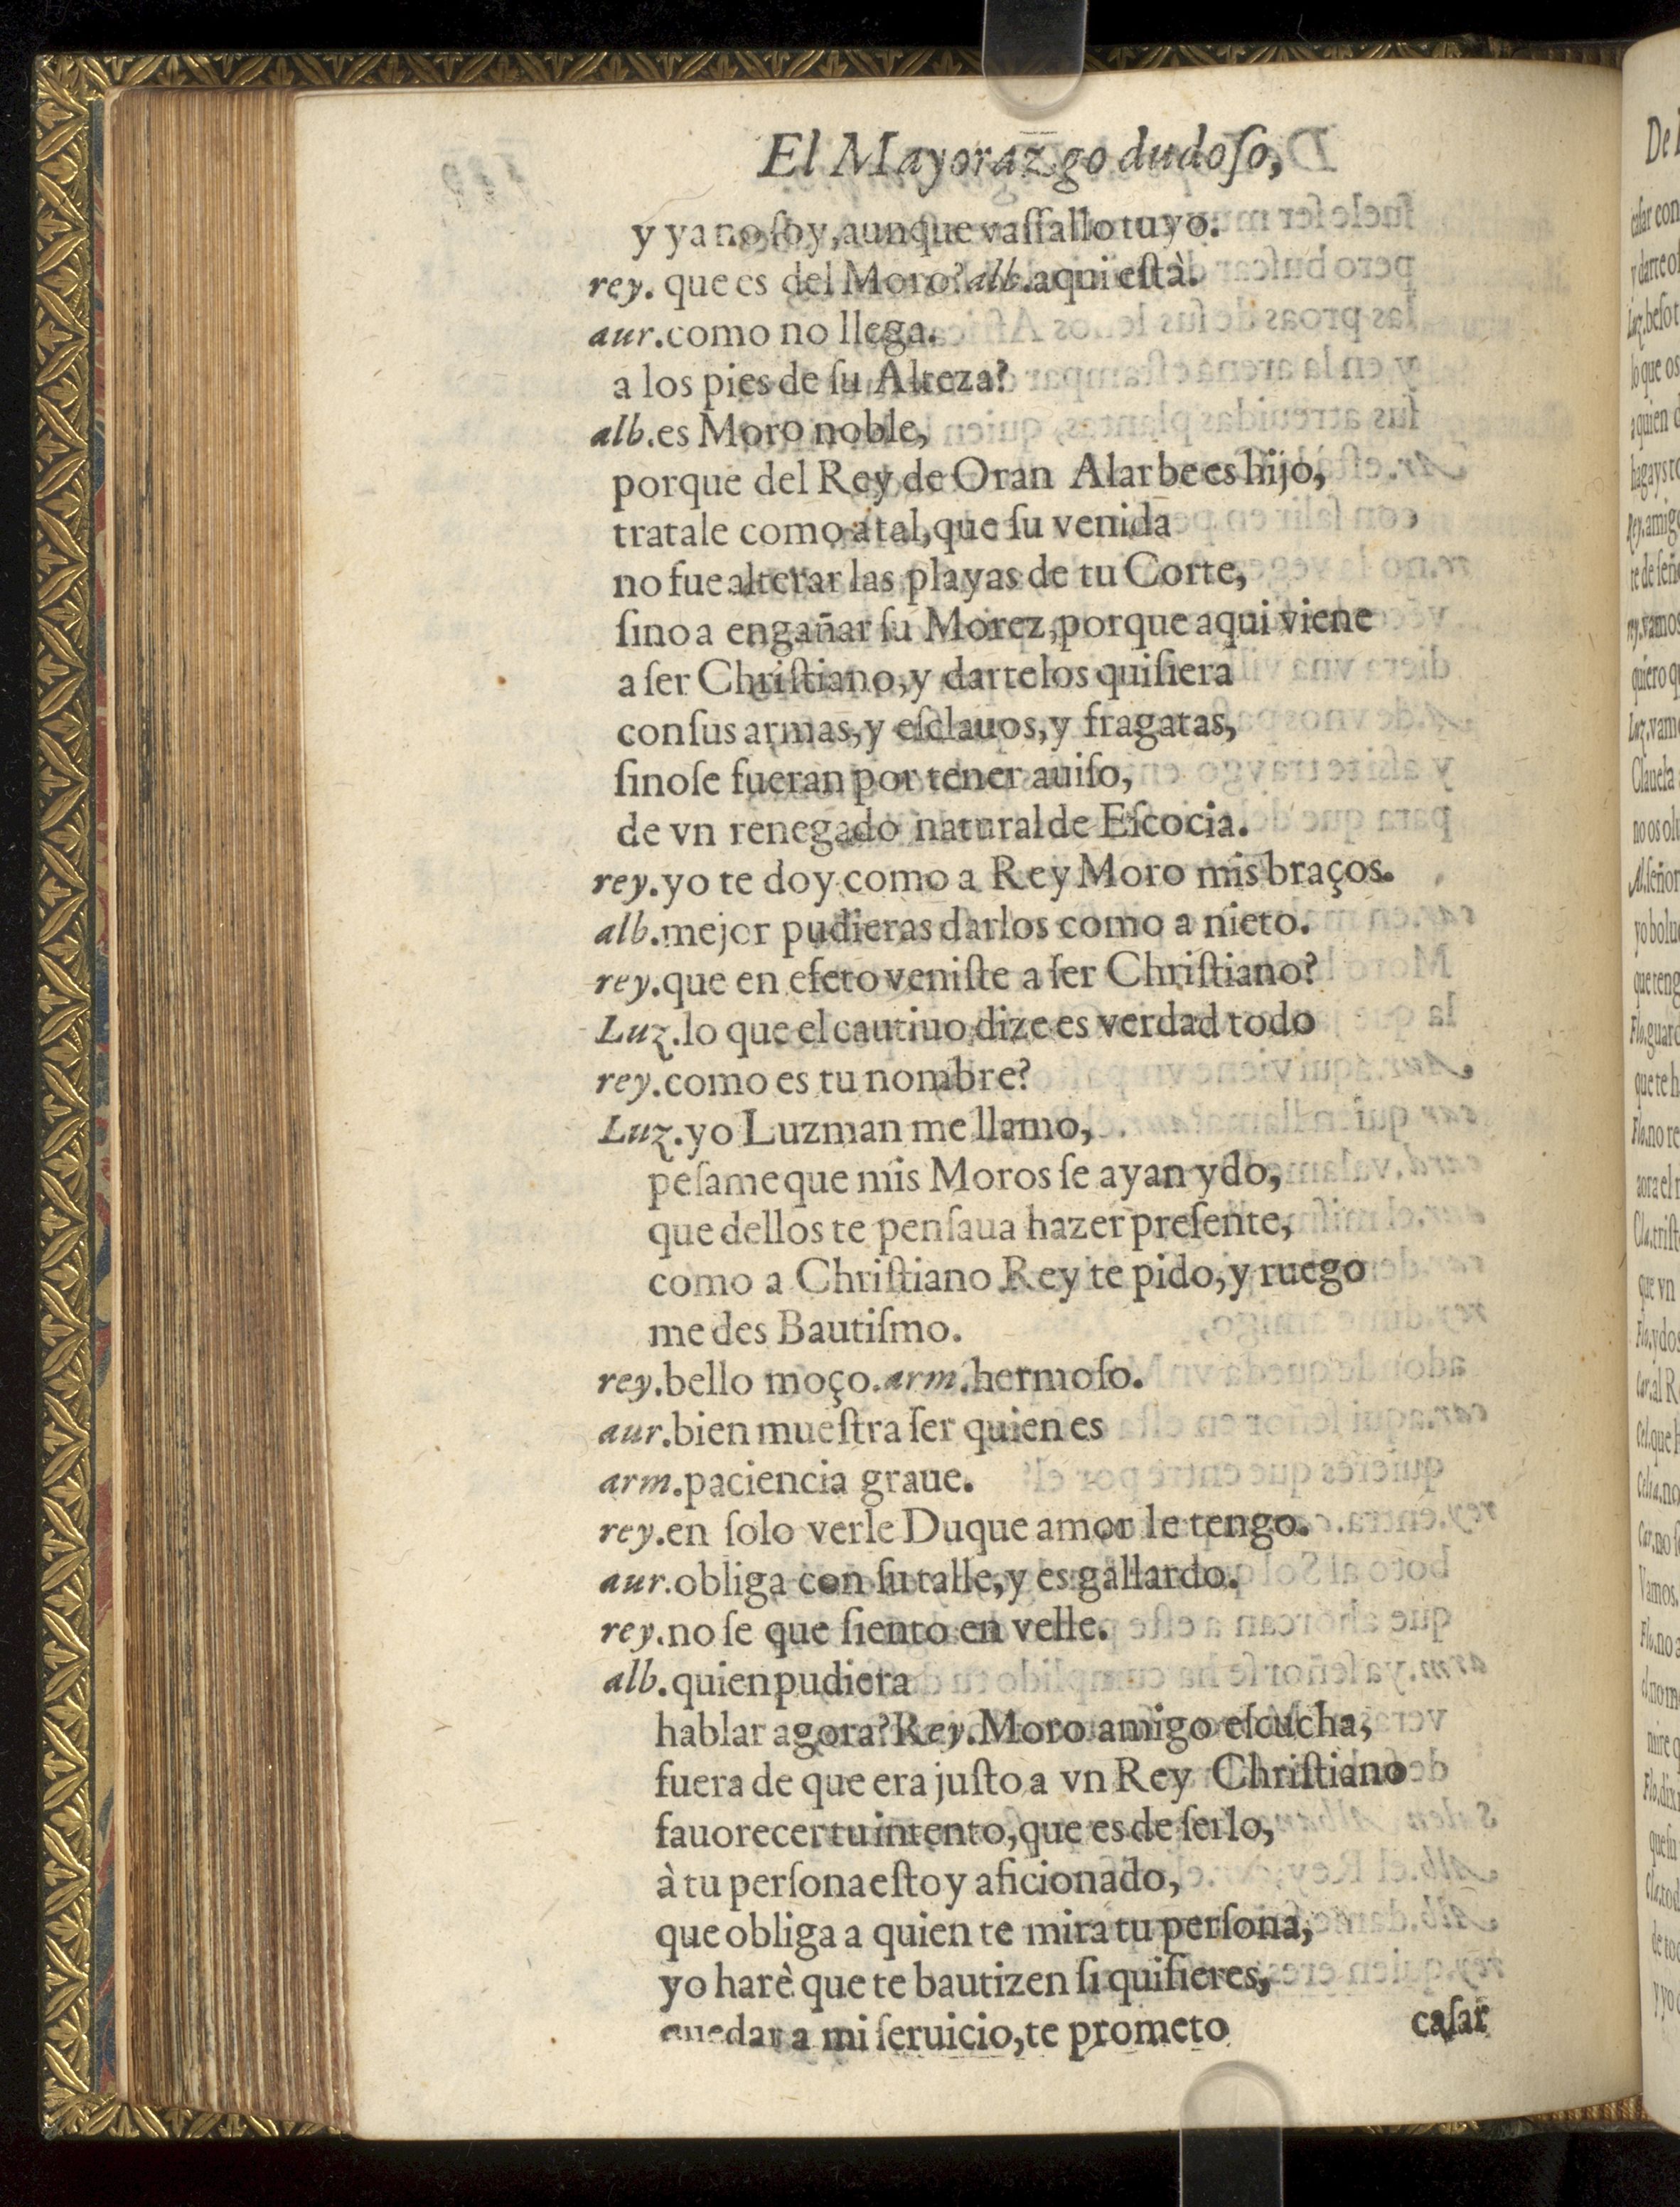 El Mayorazgo dudoſo,
y ya no ſoy, aunque vaſſallo tuyo.
rey. que es del Moro? alb. aqui eſtà.
aur. como no llega.
a los pies de ſu Alteza?
alb. es Moro noble,
porque del Rey de Oran Alarbe es hijo,
tratale como a tal, que ſu venida
no fue alterar las playas de tu Corte,
ſino a engañar ſu Morez, porque aqui viene
a ſer Chriſtiano, y dartelos quiſiera
con ſus armas, y eſclauos, y fragatas,
ſino ſe fueran por tener auiſo,
de vn renegado natural de Eſcocia.
rey. yo te doy como a Rey Moro mis braços.
alb. mejor pudieras darlos como a nieto.
rey. que en efeto veniſte a ſer Chriſtiano?
Luz. lo que el cautiuo dize es verdad todo
rey. como es tu nombre?
Luz. yo Luzman me llamo,
peſame que mis Moros ſe ayan ydo,
que dellos te penſaua hazer preſente,
como a Chriſtiano Rey te pido, y ruego
me des Bautiſmo.
rey. bello moço. arm. hermoſo.
aur. bien mueſtra ſer quien es
arm. paciencia graue.
rey. en ſolo verle Duque amor le tengo.
aur. obliga con ſu talle, y es gallardo.
rey. no ſe que ſiento en velle.
alb. quien pudiera
hablar agora? Rey. Moro amigo eſcucha,
fuera de que era juſto a vn Rey Chriſtiano
fauorecer tu intento, que es de ſerlo,
à tu perſona eſtoy aficionado,
que obliga a quien te mira tu perſona,
yo harè que te bautizen ſi quiſieres,
quedar a mi ſeruicio, te prometo
caſar